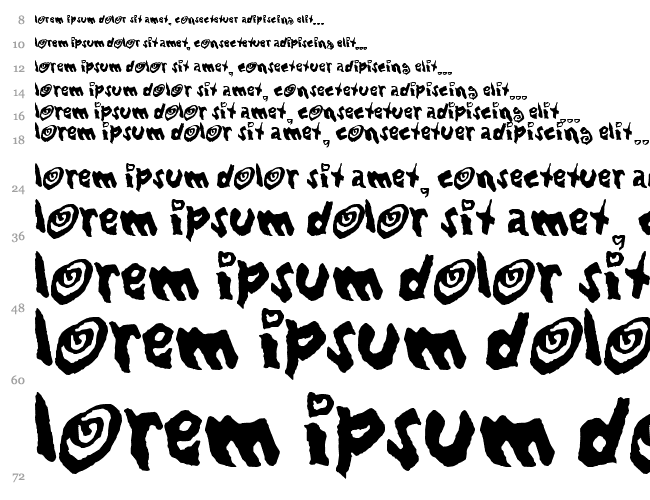 8 lorem ipsum dolor sit amet, consectetuer adipiscing elit...
10 lorem ipsum dolor sit amet, consectetuer adipiscing elit...
12 lorem ipsum dolor sit amet, consectetuer adipiscing elit...
14 lorem ipsum dolor sit amet, consectetuer adipiscing elit...
16 lorem ipsum dolor sit amet, consectetuer adipiscing elit...
18 lorem ipsum dolor sit amet, consectetuer adipiscing elit..
24 lorem ipsum dolor sit amet, consectetuer a
36 lorem ipsum dolor sit amet,
48 lorem ipsum dolor sit
60 lorem ipsum dolo
72 lorem ipsum d